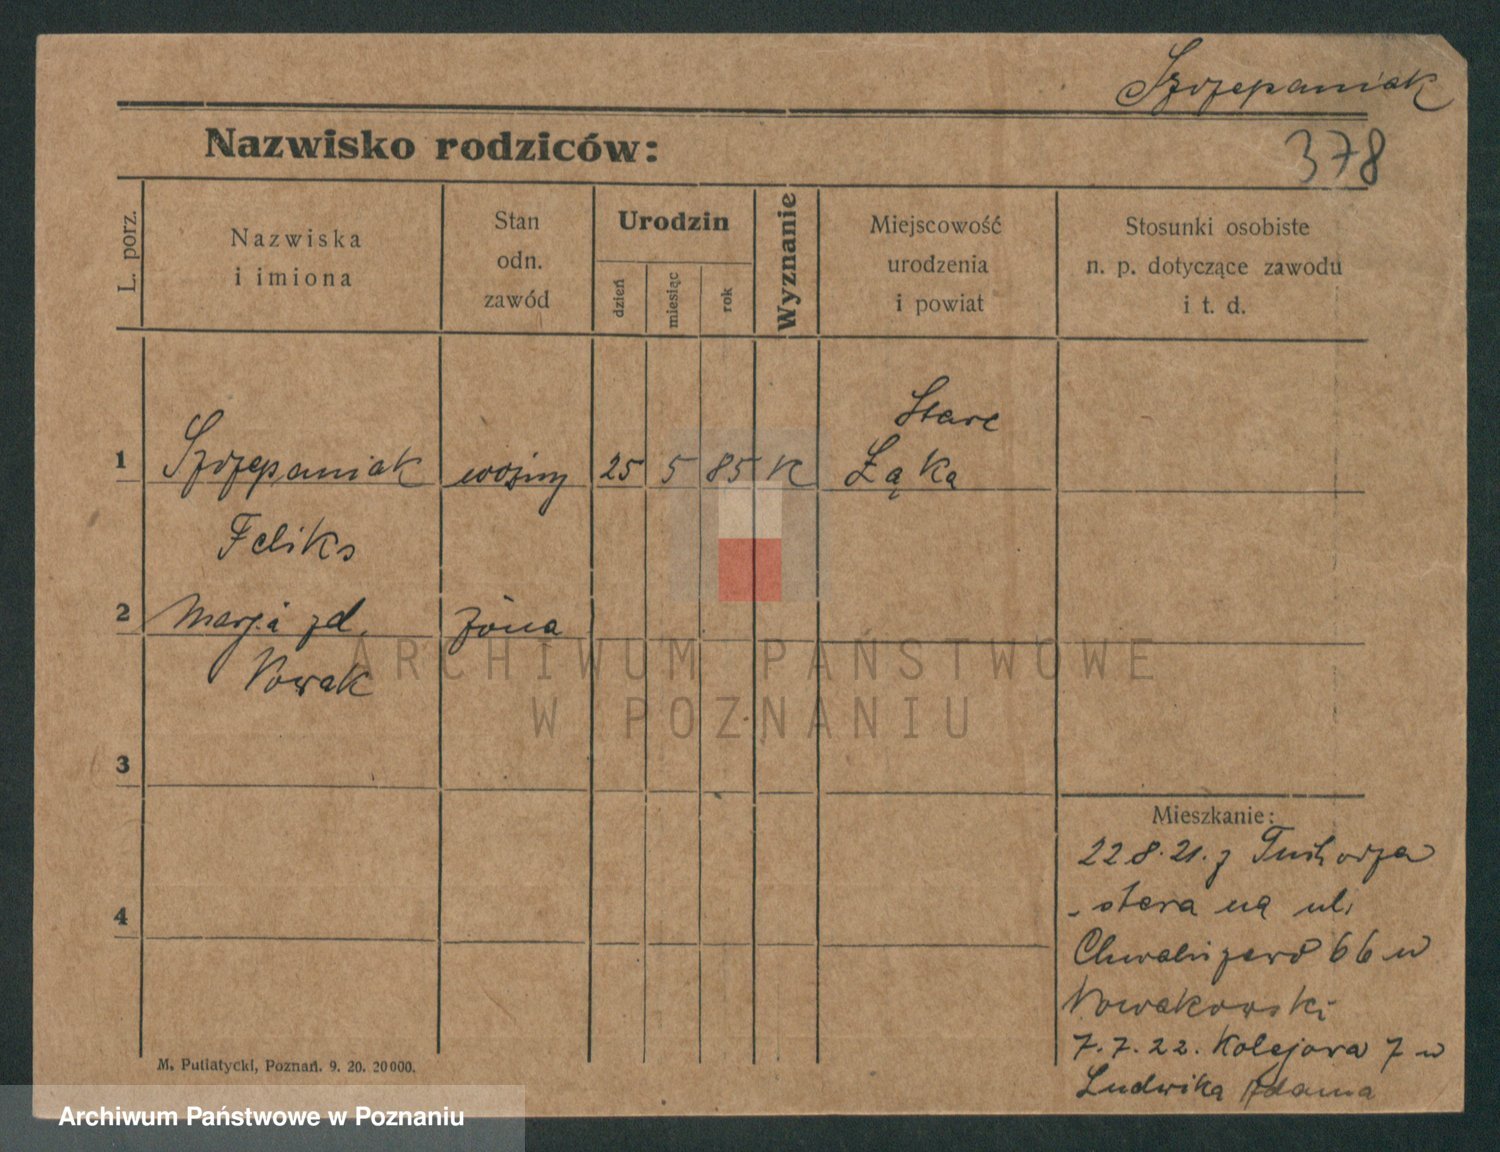 Szczepaniak
378
Nazwisko rodziców:
L. porz.
Nazwiska
i imiona
Stan
odn.
zawód
Urodzin
dzień
miesiąc
rok
Wyznanie
Miejscowość
urodzenia
i powiat
Stosunki osobiste
n. p. dotyczące zawodu
i t. d.
Stare
1 Szczepaniak woźny 25 5 85 K Łąka
Feliks
2 Marja zd. żona
Nowak
ARCHIWUM PAŃSTWOWE
W POZNANIU
3
4
Mieszkanie:
22.8.21. z Tuchorza
stara na ul.
66 u
Nowakowski
7.7.22. Kolejowa 7 u
Ludwika Adama
M. Putiatycki, Poznań. 9. 20. 20000.
Archiwum Państwowe w Poznaniu